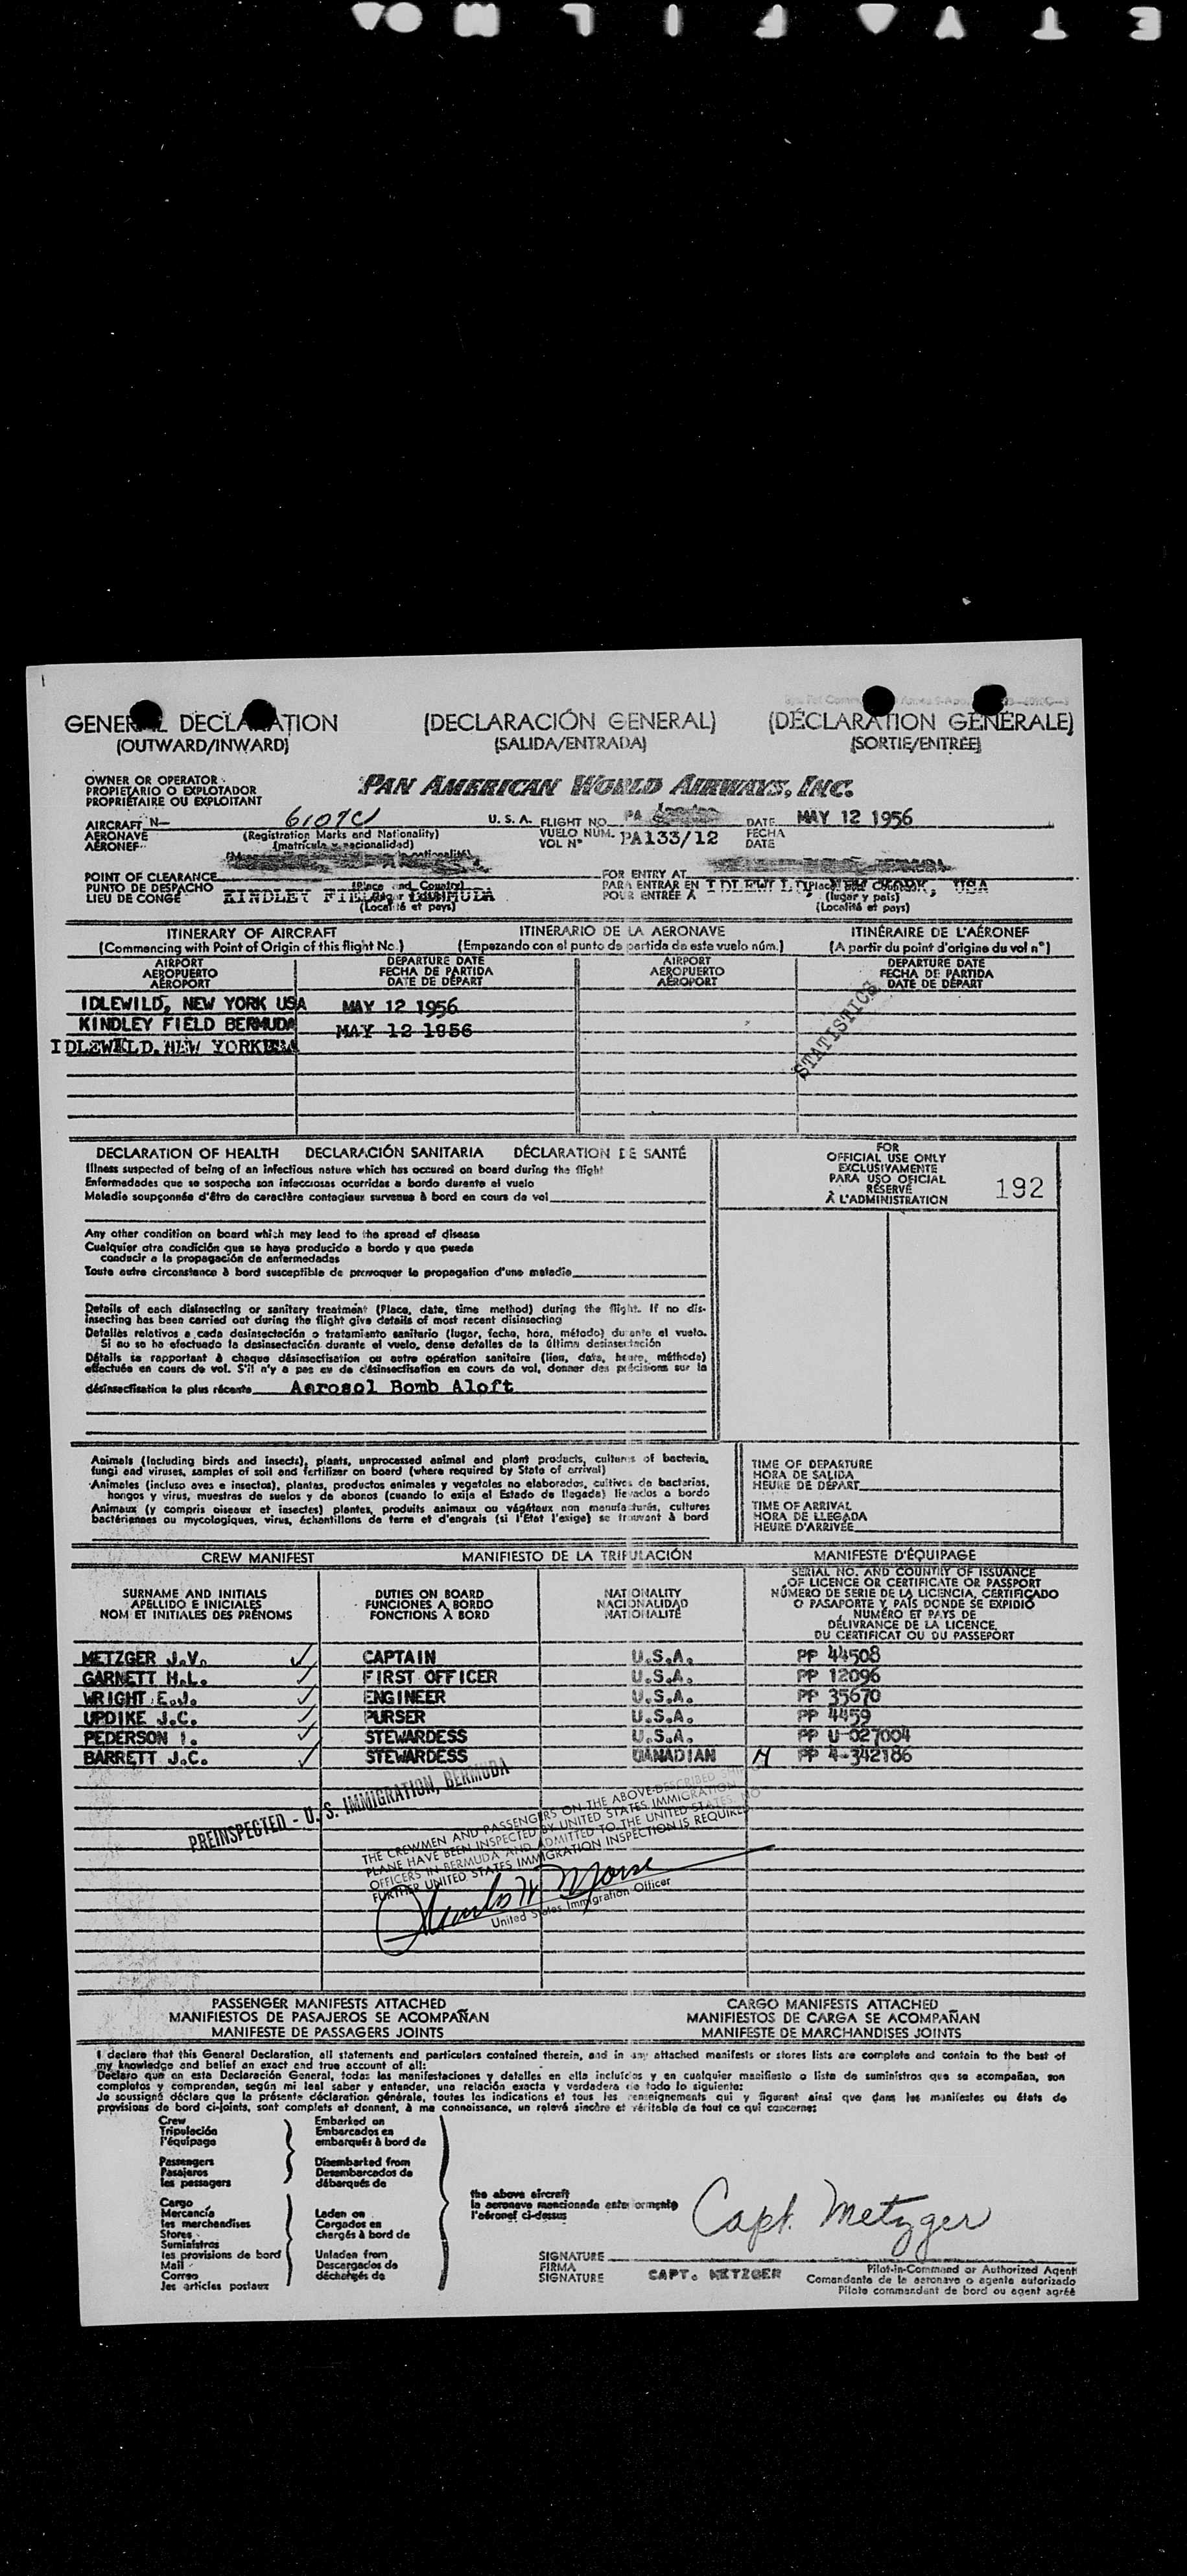 E T Y A F I L M
GENERAL DECLARATION (DECLARACIÓN GENERAL) (DÉCLARATION GÉNÉRALE)
(OUTWARD/INWARD) (SALIDA/ENTRADA) (SORTIE/ENTRÉE)
OWNER OR OPERATOR
PROPIETARIO O EXPLOTADOR
PROPRIÉTAIRE OU EXPLOITANT
PAN AMERICAN WORLD AIRWAYS, INC.
AIRCRAFT N— U. S. A. FLIGHT NO. PA DATE MAY 12 1956
AERONAVE (Registration Marks and Nationality) VUELO NÚM. PA133/12 FECHA
AÉRONEF (matrícula y nacionalidad) VOL N° DATE
POINT OF CLEARANCE FOR ENTRY AT
PUNTO DE DESPACHO KINDLEY FIELD BERMUDA PARA ENTRAR EN IDLEWILD, NEW YORK, USA
LIEU DE CONGÉ (Localité et pays) POUR ENTRÉE À (lugar y país)
(Localité et pays)
ITINERARY OF AIRCRAFT ITINERARIO DE LA AERONAVE ITINÉRAIRE DE L'AÉRONEF
(Commencing with Point of Origin of this flight No.) (Empezando con el punto de partida de este vuelo núm.) (A partir du point d'origine du vol n°)
AIRPORT DEPARTURE DATE AIRPORT DEPARTURE DATE
AEROPUERTO FECHA DE PARTIDA AEROPUERTO FECHA DE PARTIDA
AÉROPORT DATE DE DÉPART AÉROPORT DATE DE DÉPART
IDLEWILD, NEW YORK USA MAY 12 1956
KINDLEY FIELD BERMUDA MAY 12 1956
IDLEWILD, NEW YORK USA
STATISTICS
DECLARATION OF HEALTH DECLARACIÓN SANITARIA DÉCLARATION DE SANTÉ
Illness suspected of being of an infectious nature which has occured on board during the flight
Enfermedades que se sospecha son infecciosas ocurridas a bordo durante el vuelo
Maladie soupçonnée d'être de caractère contagieux survenue à bord en cours de vol
FOR
OFFICIAL USE ONLY
EXCLUSIVAMENTE
PARA USO OFICIAL
RÉSERVÉ
À L'ADMINISTRATION
192
Any other condition on board which may lead to the spread of disease
Cualquier otra condición que se haya producido a bordo y que pueda
conducir a la propagación de enfermedades
Toute autre circonstance à bord susceptible de provoquer la propagation d'une maladie
Details of each disinsecting or sanitary treatment (Place, date, time method) during the flight. If no dis-
insecting has been carried out during the flight give details of most recent disinsecting
Detalles relativos a cada desinsectación o tratamiento sanitario (lugar, fecha, hora, método) durante el vuelo.
Si no se ha efectuado la desinsectación durante el vuelo, dense detalles de la última desinsectación
Détails se rapportant à chaque désinsectisation ou autre opération sanitaire (lieu, date, heure, méthode)
effectuée en cours de vol. S'il n'y a pas eu de désinsectisation en cours de vol, donner des précisions sur la
désinsectisation la plus récente Aerosol Bomb Aloft
Animals (Including birds and insects), plants, unprocessed animal and plant products, cultures of bacteria,
fungi and viruses, samples of soil and fertilizer on board (where required by State of arrival)
Animales (incluso aves e insectos), plantas, productos animales y vegetales no elaborados, cultivos de bacterias,
hongos y virus, muestras de suelos y de abonos (cuando lo exija el Estado de llegada) llevados a bordo
Animaux (y compris oiseaux et insectes) plantes, produits animaux ou végétaux non manufacturés, cultures
bactériennes ou mycologiques, virus, échantillons de terre et d'engrais (si l'État l'exige) se trouvant à bord
TIME OF DEPARTURE
HORA DE SALIDA
HEURE DE DÉPART
TIME OF ARRIVAL
HORA DE LLEGADA
HEURE D'ARRIVÉE
CREW MANIFEST MANIFIESTO DE LA TRIPULACIÓN MANIFESTE D'ÉQUIPAGE
SURNAME AND INITIALS
APELLIDO E INICIALES
NOM ET INITIALES DES PRÉNOMS
DUTIES ON BOARD
FUNCIONES A BORDO
FONCTIONS À BORD
NATIONALITY
NACIONALIDAD
NATIONALITÉ
SERIAL NO. AND COUNTRY OF ISSUANCE
OF LICENCE OR CERTIFICATE OR PASSPORT
NÚMERO DE SERIE DE LA LICENCIA, CERTIFICADO
O PASAPORTE Y PAÍS DONDE SE EXPIDIÓ
NUMÉRO ET PAYS DE
DÉLIVRANCE DE LA LICENCE,
DU CERTIFICAT OU DU PASSEPORT
METZGER J.V. CAPTAIN U.S.A. PP 44508
GARNETT H.L. FIRST OFFICER U.S.A. PP 12096
WRIGHT E.J. ENGINEER U.S.A. PP 35670
UPDIKE J.C. PURSER U.S.A. PP 4459
PEDERSON I. STEWARDESS U.S.A. PP U-027004
BARRETT J.C. STEWARDESS CANADIAN H PP 4-342186
PREINSPECTED - U. S. IMMIGRATION, BERMUDA
THE CREWMEN AND PASSENGERS ON THE ABOVE-DESCRIBED
PLANE HAVE BEEN INSPECTED BY UNITED STATES IMMIGRATION
OFFICERS IN BERMUDA AND ADMITTED TO THE UNITED STATES. NO
FURTHER UNITED STATES IMMIGRATION INSPECTION IS REQUIRED
United States Immigration Officer
PASSENGER MANIFESTS ATTACHED CARGO MANIFESTS ATTACHED
MANIFIESTOS DE PASAJEROS SE ACOMPAÑAN MANIFIESTOS DE CARGA SE ACOMPAÑAN
MANIFESTE DE PASSAGERS JOINTS MANIFESTE DE MARCHANDISES JOINTS
I declare that this General Declaration, all statements and particulars contained therein, and in any attached manifests or stores lists are complete and contain to the best of
my knowledge and belief an exact and true account of all:
Declaro que en esta Declaración General, todas las manifestaciones y detalles en ella incluídos y en cualquier manifiesto o lista de suministros que se acompañan, son
completos y comprenden, según mi leal saber y entender, una relación exacta y verdadera de todo lo siguiente:
Je soussigné déclare que la présente déclaration générale, toutes les indications et tous les renseignements qui y figurent ainsi que dans les manifestes ou états de
provisions de bord ci-joints, sont complets et donnent, à ma connaissance, un relevé sincère et véritable de tout ce qui concerne:
Crew Embarked on
Tripulación Embarcados en
l'équipage embarqués à bord de
Passengers Disembarked from
Pasajeros Desembarcados de
les passagers débarqués de
Cargo
Mercancía Laden on
les marchandises Cargados en
Stores chargés à bord de
Suministros
les provisions de bord Unladen from
Mail Descargados de
Correo déchargés de
les articles postaux
the above aircraft
la aeronave mencionada anteriormente
l'aéronef ci-dessus
Capt. Metzger
SIGNATURE
FIRMA
SIGNATURE
CAPT. METZGER
Pilot-in-Command or Authorized Agent
Comandante de la aeronave o agente autorizado
Pilote commandant de bord ou agent agréé